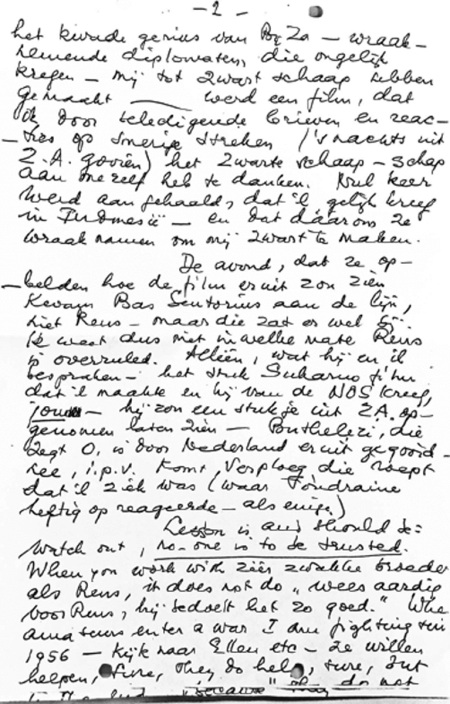 - 2 -
het kwade genius van BuZa - wraak-
nemende diplomaten, die ongelijk
kregen - mij tot zwart schaap hebben
gemaakt — werd een film, dat
ik door beledigende brieven en reac-
- ties op smerige streken ('s nachts uit
Z.A. gooien) het zwarte schaap - schap
aan me zelf heb te danken. Nul keer
werd aangehaald, dat ik gelijk kreeg
in Indonesië - en dat dáárom ze
wraak namen om mij zwart te maken.
De avond, dat ze op-
- belden hoe de film eruit zou zien
kwam Bas Sentorius aan de lijn,
niet Rens - maar die zat er wel bij.
Ik weet dus niet in welke mate Rens
is overruled. Alléén, wat hij en ik
bespraken - het stuk Sukarno film
dat ik maakte en hij van de NOS kreeg,
- hij zou een stukje uit ZA. op-
genomen laten zien - Buthelezi, die
zegt O. is door Nederland eruit gegooid -
nee, i.p.v. komt Verploeg die roept
dat ik ziek was (waar Fondraine
heftig op reageerde - als enige)
Lesson is and should be:
watch out, no-one is to be trusted.
When you work with zeer zwakke broeders
als Rens, it does not do „wees aardig
voor Rens, hij bedoelt het zo goed." Whe
amateurs enter a war I am fighting sin
1956 - kijk naar Ellen etc - ze willen
helpen, sure, they do help, sure, but